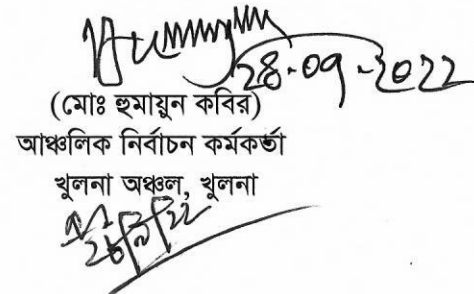 28-09-2022
(মোঃ হুমায়ুন কবির)
আঞ্চলিক নির্বাচন কর্মকর্তা
খুলনা অঞ্চল, খুলনা